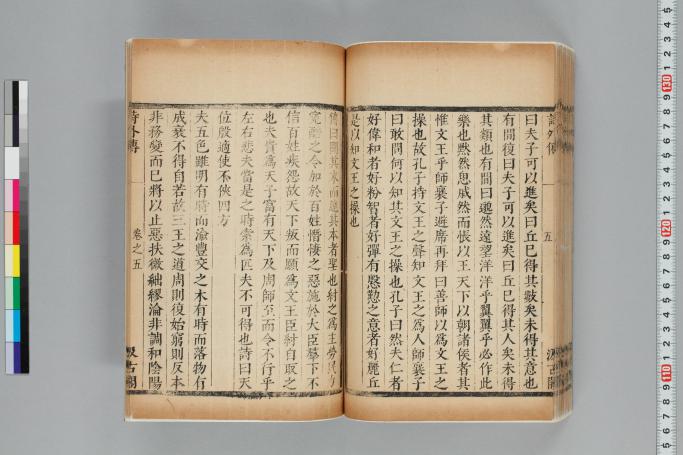 曰夫子可以進矣曰丘已得其數矣未得其意也
有間復曰夫子可以進矣曰丘已得其人矣未得
其類也有間曰邈然遠望洋洋乎翼翼乎必作此
樂也黙然思戚然而悵以王天下以朝諸侯者其
惟文王乎師襄子避席再拜曰善師以為文王之
操也故孔子持文王之聲知文王之為人師襄子
曰敢問何以知其文王之操也孔子曰然夫仁者
好偉和者好粉智者好彈有慇懃之意者好麗丘
是以知文王之操也
傳曰聞其末而達其本者聖也紂之為主勞民力
冤酷之令加於百姓憯悽之惡施於大臣羣下不
信百姓疾怨故天下叛而願為文王臣紂自取之
也夫貴為天子富有天下及周師至而令不行乎
左右悲夫當是之時索為匹夫不可得也詩曰天
位殷適使不俠四方
夫五色雖明有時而渝豐交之木有時而落物有
成衰不得自若故三王之道周則復始窮則反本
非務變而已將以止惡扶微絀繆淪非調和陰陽
詩外傳
卷之五
汲古閣
詩外傳
五
汲古閣